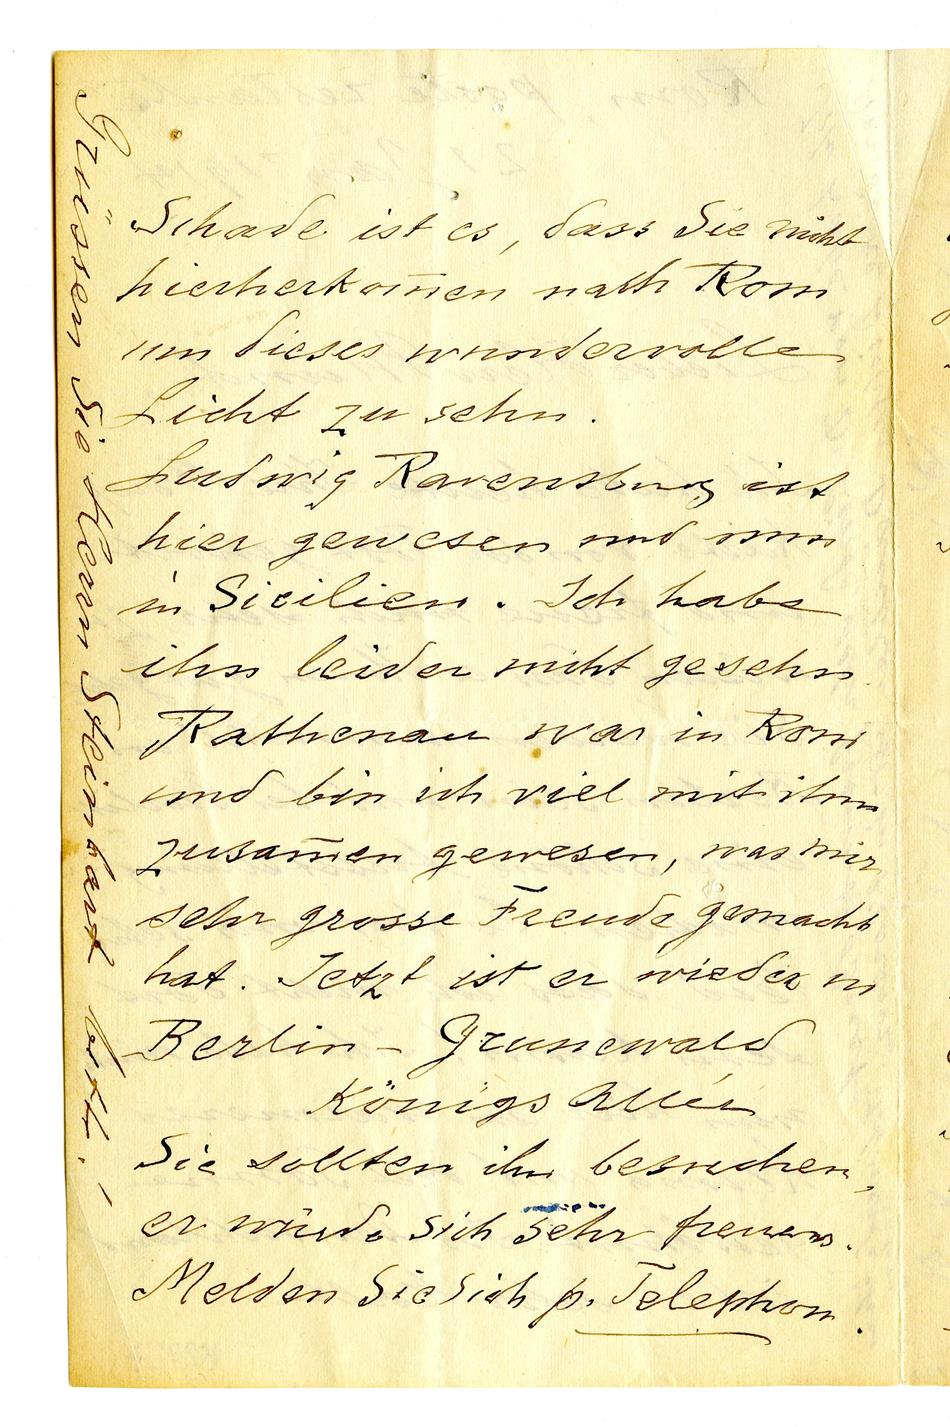 Schade ist es, dass Sie nicht
hierherkom̅en nach Rom
um dieses wundervolle
Licht zu sehn.
Ludwig Ravensburg ist
hier gewesen und nun
in Sicilien. Ich habe
ihn leider nicht gesehn
Rathenau war in Rom
und bin ich viel mit ihm
zusam̅en gewesen, was mir
sehr grosse Freude gemacht
hat. Jetzt ist er wieder in
Berlin - Grunewald
Königs Allée
Sie sollten ihn besuchen,
er würde sich sehr freuen.
Melden Sie Sich p. Telephon.
Grüssen Sie Herrn Steinbart bitte!